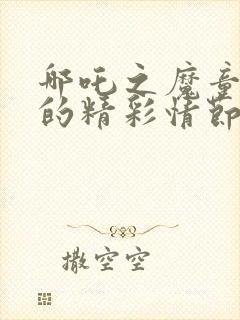 哪吒之魔童
的精彩情节
撒空空